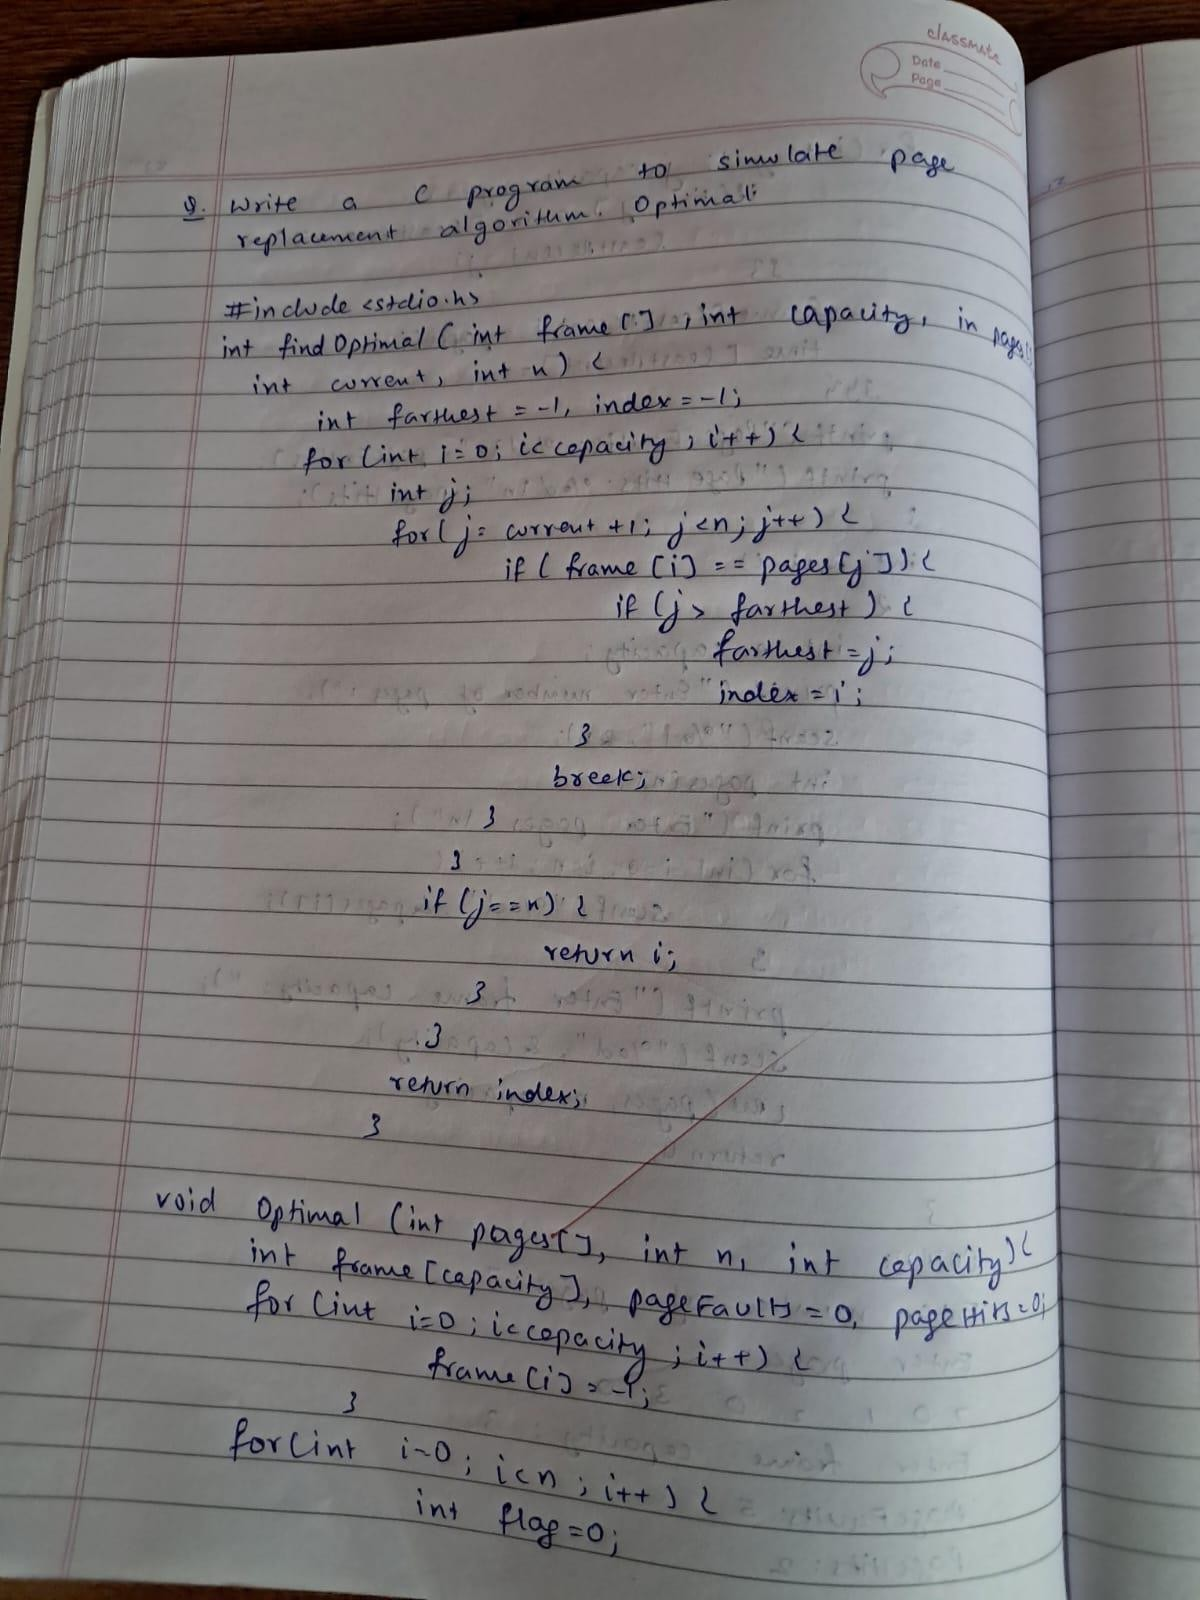 classmate
Date
Page
Q. Write a C program to simulate page
replacement algorithm. Optimal:
#include <stdio.h>
int findOptimal ( int frame [ ] , int capacity, in pages[ ]
int current, int n) {
int farthest = -1, index = -1;
for (int i=0; i< capacity ; i++) {
int j;
for( j= current +1; j<n; j++) {
if ( frame [i] == pages[j]) {
if (j > farthest ) {
farthest = j;
index = i;
}
break;
}
}
if (j==n) {
return i;
}
}
return index;
}
void Optimal (int pages[], int n, int capacity) {
int frame [capacity], pageFaults = 0, pageHits=0;
for (int i=0 ; i<capacity ; i++) {
frame [i] = -1;
}
for(int i=0 ; i<n ; i++) {
int flag=0;